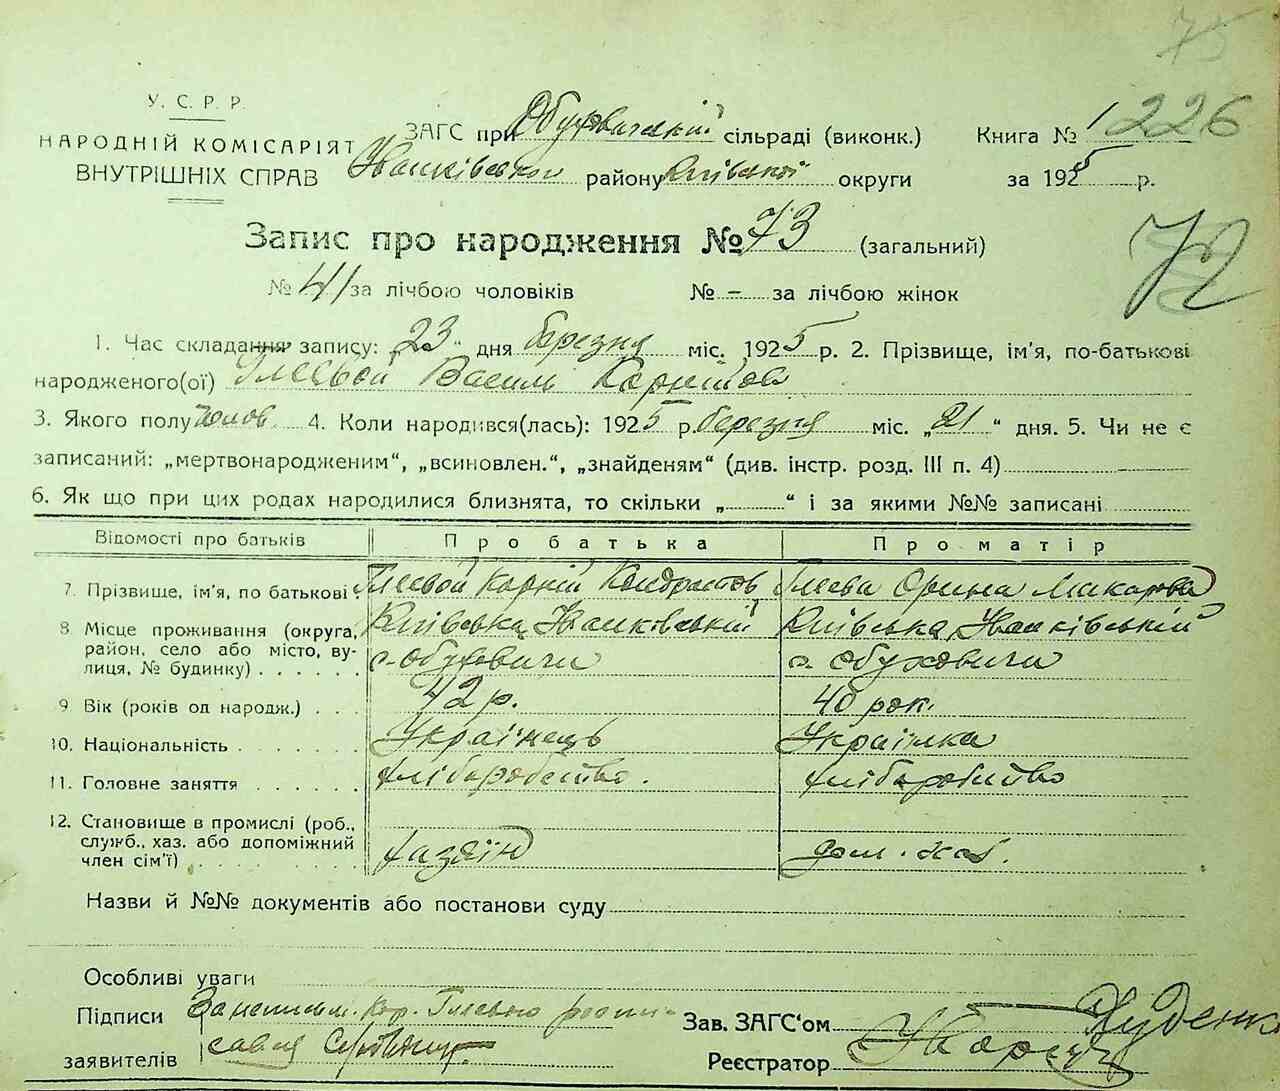 75
У. С. Р. Р.
НАРОДНІЙ КОМІСАРІЯТ
ВНУТРІШНІХ СПРАВ
ЗАГС при Обуховицькій сільраді (виконк.) Книга № 1 226
Іванківського району Київської округи за 1925 р.
Запис про народження № 73 (загальний)
72
№ 41 за лічбою чоловіків № – за лічбою жінок
1. Час складання запису: „23“ дня березня міс. 1925 р. 2. Прізвище, ім'я, по-батькові
народженого(ої) Глєєвой Василь Корнійов
3. Якого полу чолов. 4. Коли народився(лась): 1925 р. березня міс. „21“ дня. 5. Чи не є
записаний: „мертвонародженим“, „всиновлен.“, „знайденям“ (див. інстр. розд. III п. 4)
6. Як що при цих родах народилися близнята, то скільки „ “ і за якими №№ записані
Відомості про батьків Про батька Про матір
7. Прізвище, ім'я, по батькові Корній Кондратов Орина Макарова
8. Місце проживання (округа, район, село або місто, вулиця, № будинку) Київська, Іванківський с. Обуховичи Київська, Іванківський с. Обуховичи
9. Вік (років од народж.) 42 р. 40 рок.
10. Національність Українець Українка
11. Головне заняття хліборобство. хліборобство
12. Становище в промислі (роб., служб., хаз. або допоміжний член сім'ї) хазяїн дом. хоз.
Назви й №№ документів або постанови суду
Особливі уваги
Підписи
заявителів
Зав. ЗАГС'ом Худенко
Реєстратор